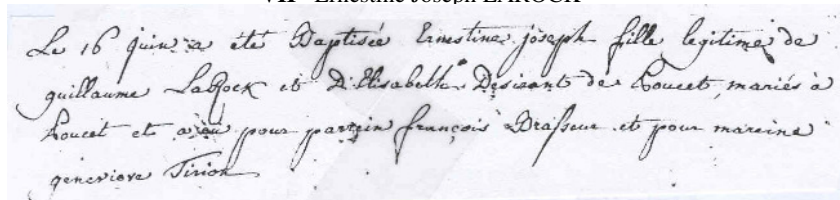 VII - Ernestine Joseph LAROCK
Le 16 juin a été Baptisée Ernestine joseph fille legitime de
guillaume LaRock et D'Elisabeth Desirant de Loucet, mariés à
Loucet et a eu pour parrein françois Brasseur et pour mareine
genevieve Tirion